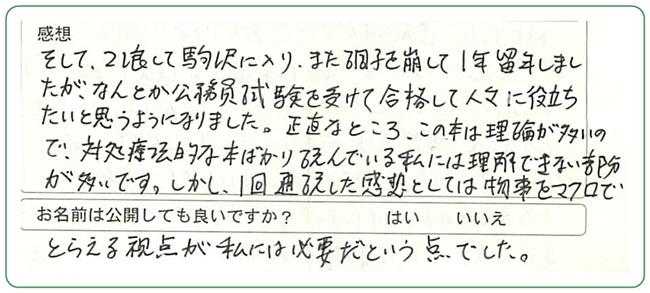 感想
そして、2浪して駒沢に入り、また調子を崩して1年留年しまし
たが、なんとか公務員試験を受けて合格して人々に役立ち
たいと思うようになりました。正直なところ、この本は理論が多いの
で、対処療法的な本ばかり読んでいる私には理解できない部分
が多いです。しかし、1回通読した感想としては物事をマクロで
お名前は公開しても良いですか？ はい いいえ
とらえる視点が私には必要だという点でした。